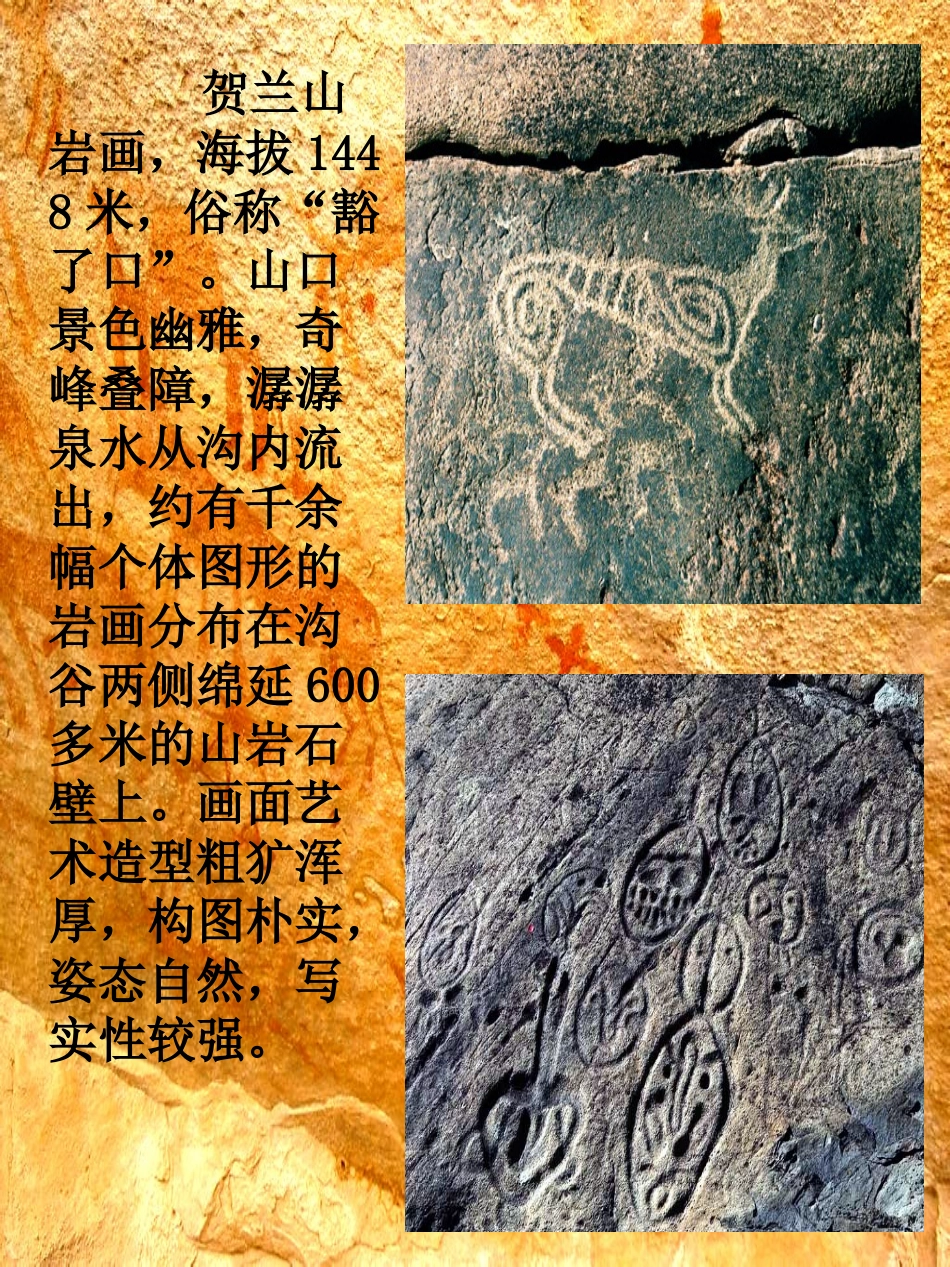 贺兰山
岩画，海拔144
8米，俗称“豁
了口”。山口
景色幽雅，奇
峰叠障，潺潺
泉水从沟内流
出，约有千余
幅个体图形的
岩画分布在沟
谷两侧绵延600
多米的山岩石
壁上。画面艺
术造型粗犷浑
厚，构图朴实，
姿态自然，写
实性较强。